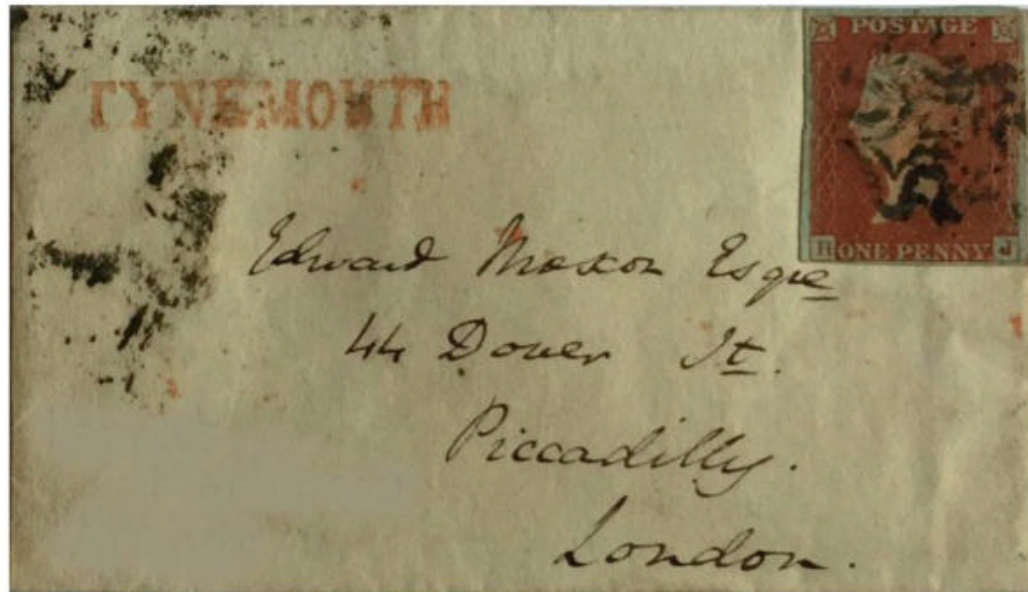 TYNEMOUTH
POSTAGE
H ONE PENNY J
Edward Moxon Esqre
44 Dover St.
Piccadilly.
London.